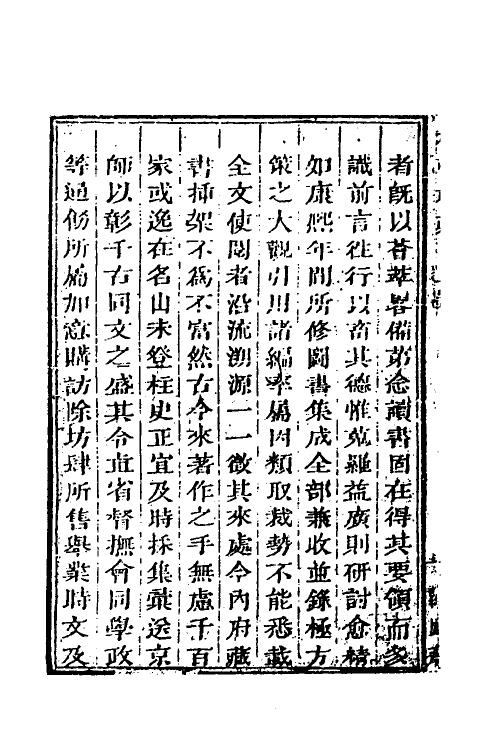 者旣以薈萃畧備第念讀書固在得其要領而多
識前言徃行以畜其德惟蒐羅益廣則研討愈精
如康熙年間所修圖書集成全部兼收並錄極方
策之大觀引用諸編率屬因類取裁勢不能悉載
全文使閱者沿流溯源一一徵其來處今內府藏
書挿架不爲不富然古今來著作之手無慮千百
家或逸在名山未登柱史正宜及時採集彙送京
師以彰千古同文之盛其令直省督撫會同學政
等通飭所屬加意購訪除坊肆所售舉業時文及